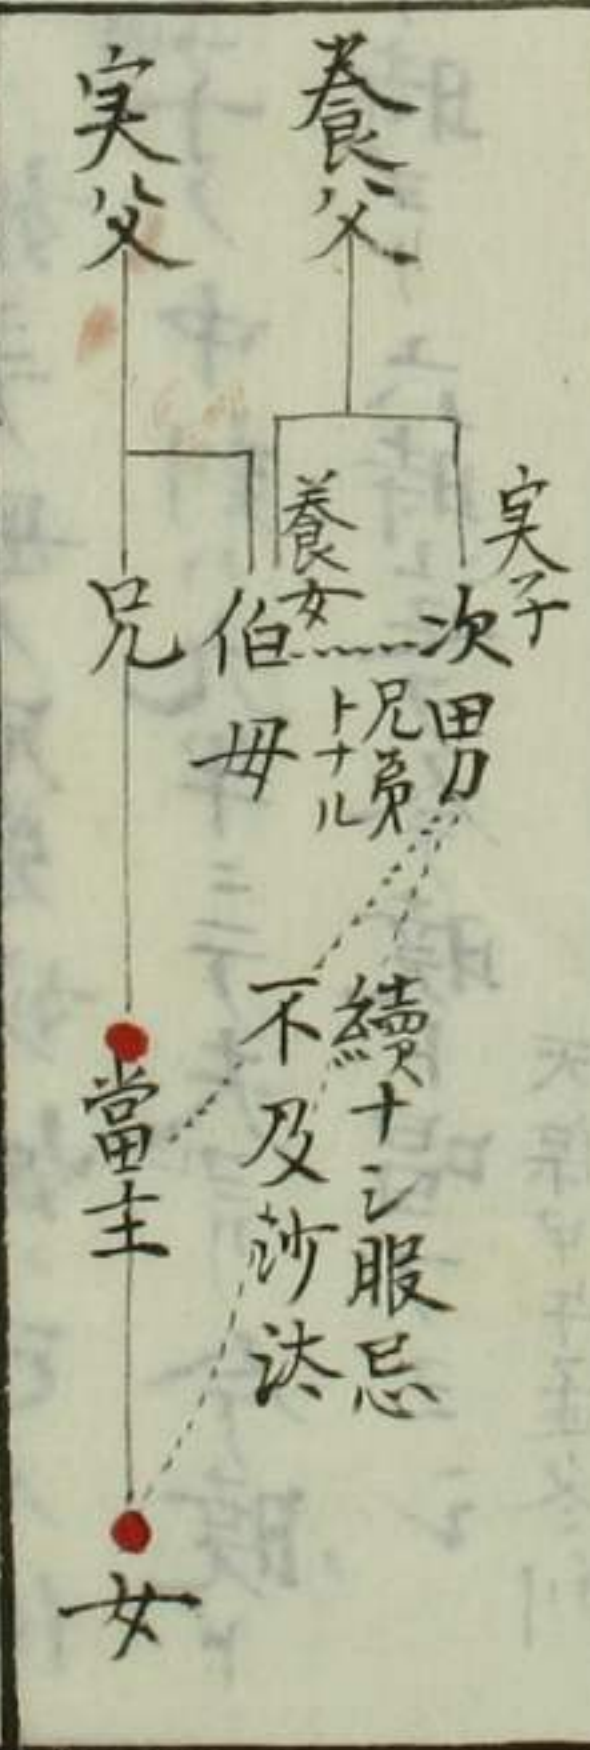 養父
実子
次男
兄弟
トナル
養女
伯母
續ナシ服忌
不及沙汰
実父
兄
當主
女